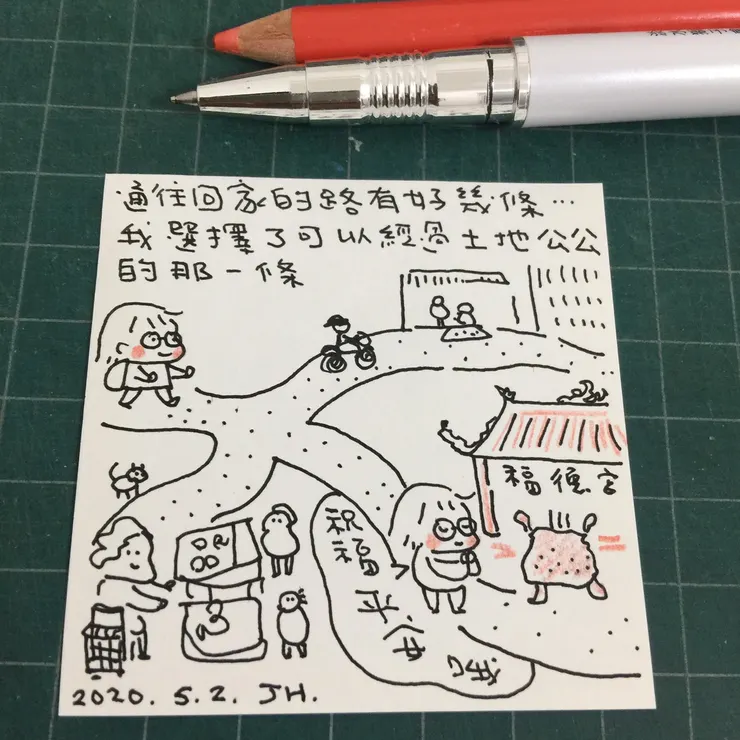 通往回家的路有好幾條…
我選擇了可以經過土地公公
的那一條
福德宮
祝福平安
2020. 5.2. JH.